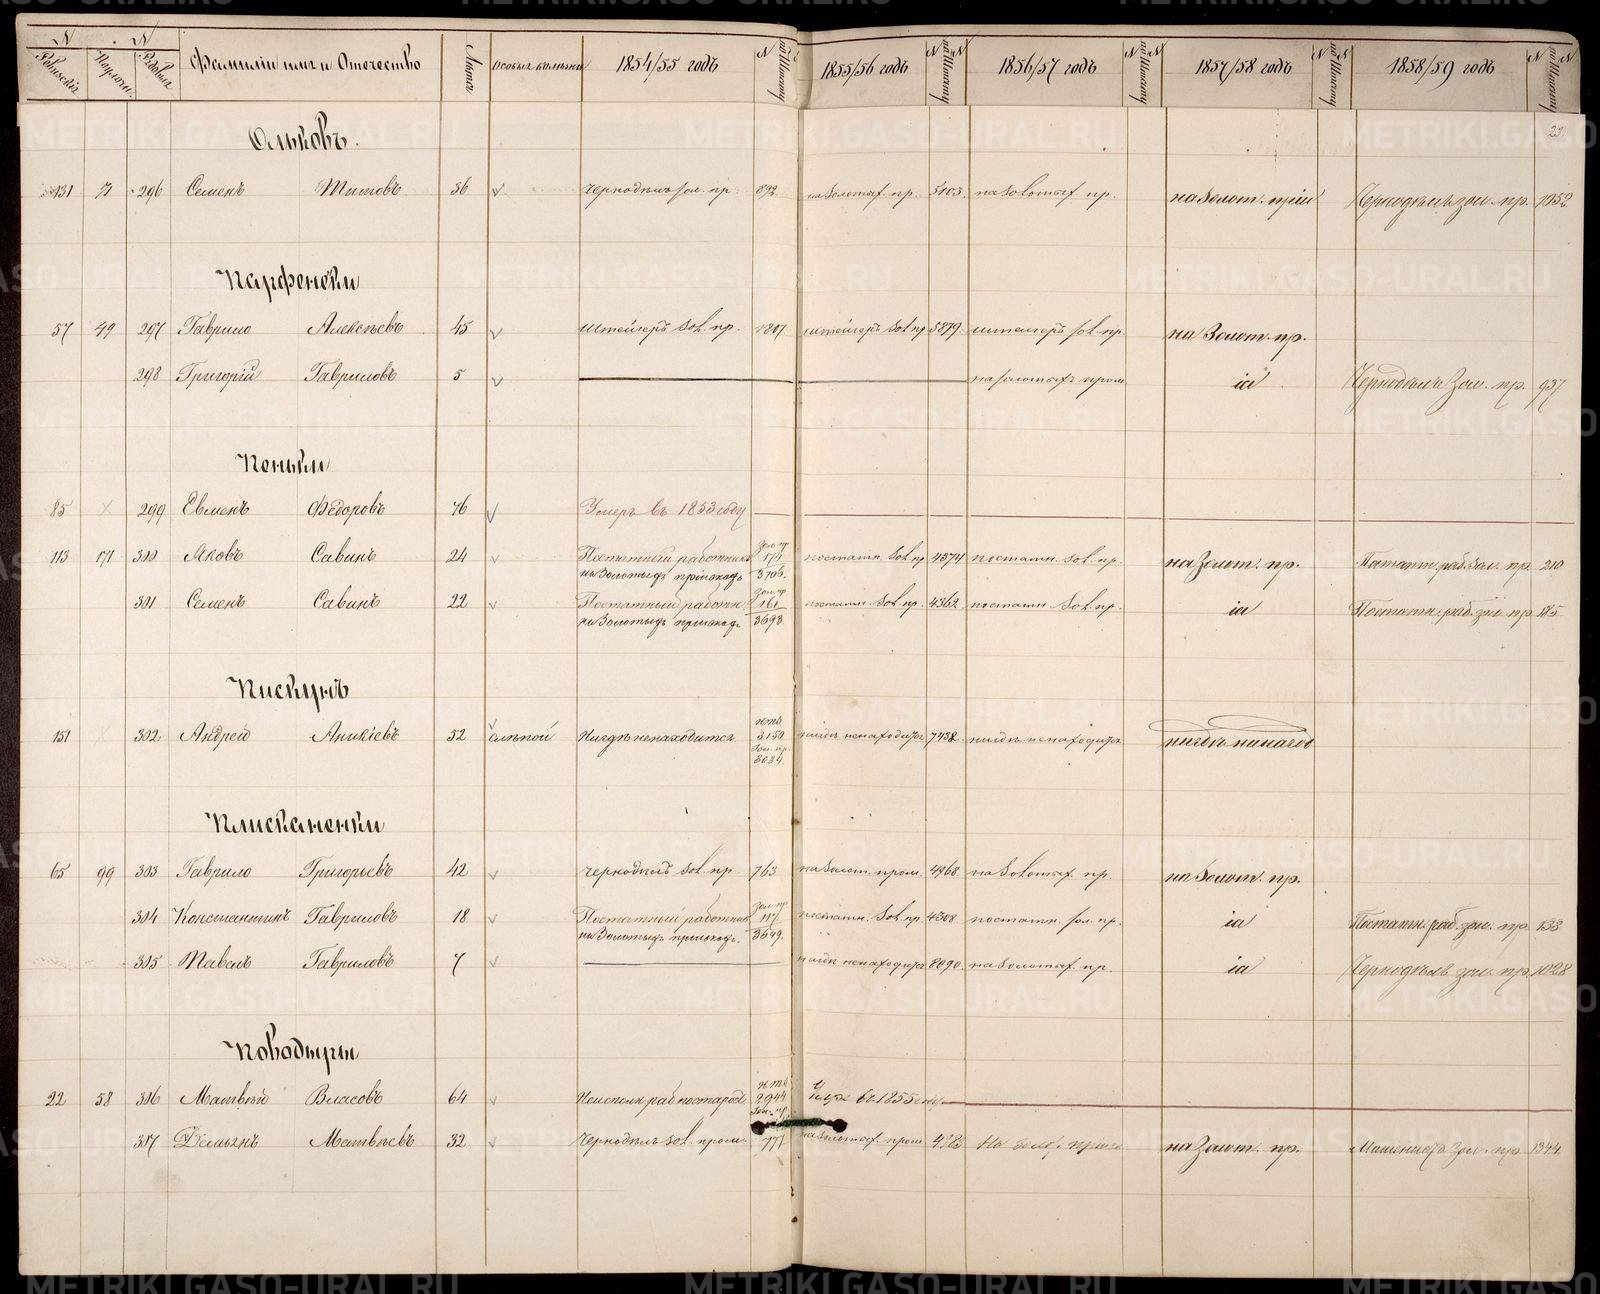 № № Фамилии имя и Отечество Лѣта 1854/55 годъ № 1855/56 годъ № 1856/57 годъ № 1857/58 годъ № 1858/59 годъ №
Ольковъ.
131 71 296 Семенъ Титовъ 36 чернодѣлъ зол. пр. 892 на Золотых. пр. 5103 на Золотых пр. на Золот. прiи Чернодѣлъ зол. пр. 1052
57 49 297 Гаврило Алексѣевъ 45 Штейгеръ Зол. пр. 1807 штейгеръ Зол. пр. 5879 штейгеръ зол. пр. на Золот. пр.
298 Григорiй Гавриловъ 5 на золотыхъ пром. iа Чернодѣлъ Зол. пр. 937
Пеньки
85 299 Евменъ Ѳедоровъ 76 Умеръ въ 1853 году
113 171 300 Яковъ Савинъ 24 Постатный работник на Золотыхъ прiискахъ Зол. пр. 174 3706. постатн. Зол. пр. 4374 постатн. Зол. пр. на Золот. пр. Постатн. раб. зол. пр. 210
301 Семенъ Савинъ 22 Постатный работн. на Золотыхъ прiискахъ Зол. пр. 161 3693 постатн. Зол. пр. 4362 постатн. Зол. пр. iа Постатн. раб. зол. пр. 185
Пискунъ
151 302 Андрей Аникiевъ 52 слѣпой Нигдѣ не находится 3150 Зол. пр. 3034 нигдѣ не находится 7438 нигдѣ не находится
65 99 303 Гаврило Григорьевъ 42 чернодѣлъ Зол. пр. 763 на Золот. пром. 4968 на Золотых. пр. на Золот. пр.
304 Константинъ Гавриловъ 18 Постатный работник на Золотыхъ прiискахъ. Зол. пр. 117 3649. постатн. Зол. пр. 4308 постатн. зол. пр. iа Постатн. раб. зол. пр. 133
305 Павелъ Гавриловъ 7 нигдѣ не находится 8090 на Золотых. пр. iа Чернодѣлъ зол. пр. 1028
Поводыри
22 58 306 Матвѣй Власовъ 64 2944 Зол. пр. Умре въ 1855 году
307 Демьянъ Матвѣевъ 32 Чернодѣлъ Зол. пром. 771 на Золотых. пром. на Золот. пр. Зол. пр. 1344
METRIKI.GASO-URAL.RU